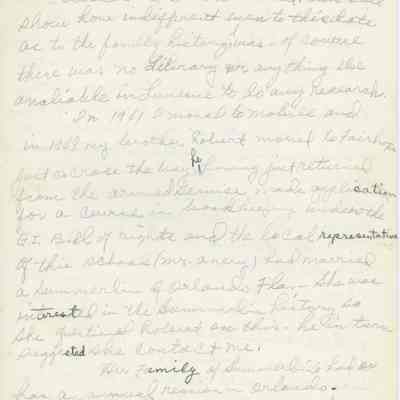 show how indifferent even to this date
as to the family history was - of course
there was no Literary or any thing else
available in Luverne to do any Research.
In 1961 I moved to Mobile and
in 1962 my brother Robert moved to Fairhope
just across the bay, he having just returned
from the armed Service made application
for a course in bookkeeping under the
G.I. Bill of rights and the local representative
of this school (Mr. Avery) had married
a Summerlin of Orlando Fla - She was
interested in the Summerlin history so
she questioned Robert on this - he in turn
suggested she contact me.
Her Family of Summerlins
has an annual reunion in Orlando -